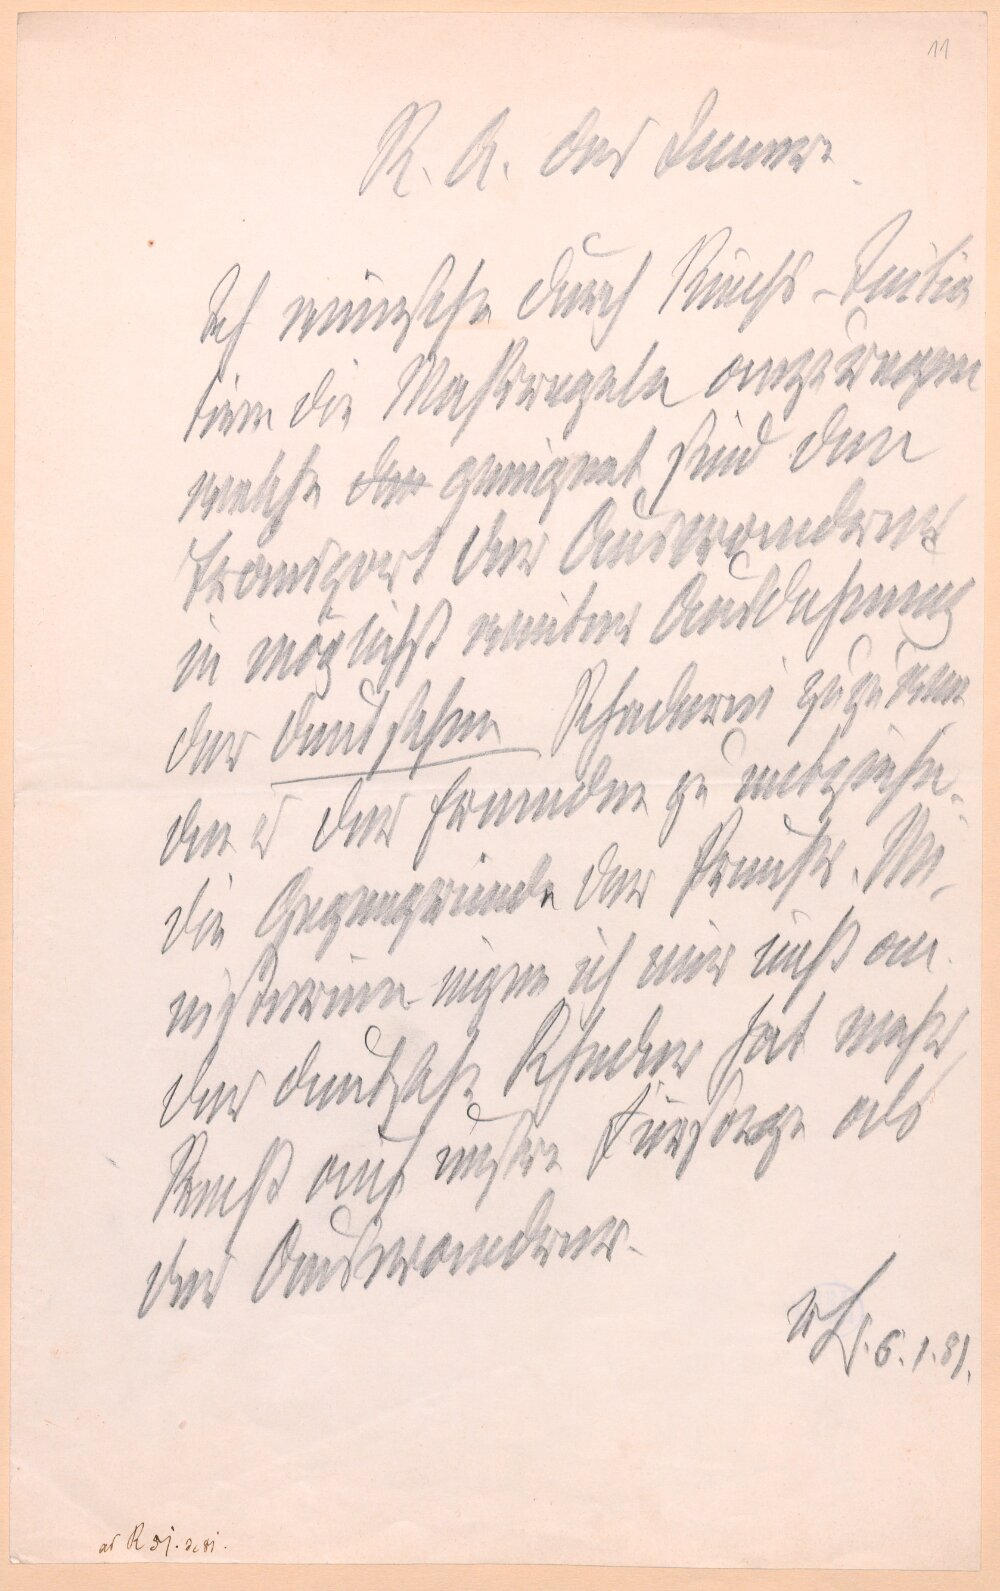 11
R. A. des Innern.
Ich wünsche durch Reichs-Initia
tive die Maßregeln anzuregen
welche der geeignet sind den
Transport der Auswanderer
in möglichst weiter Ausdehnung
der deutschen Rhederei zuzuwen
den u der fremden zu entziehn.
die Gegengründe der Preuß. Mi-
nisterien eigne ich mir nicht an.
der deutsche Rheder hat mehr
Recht auf unsre Fürsorge als
der Auswanderer.
vB 6.1.81.